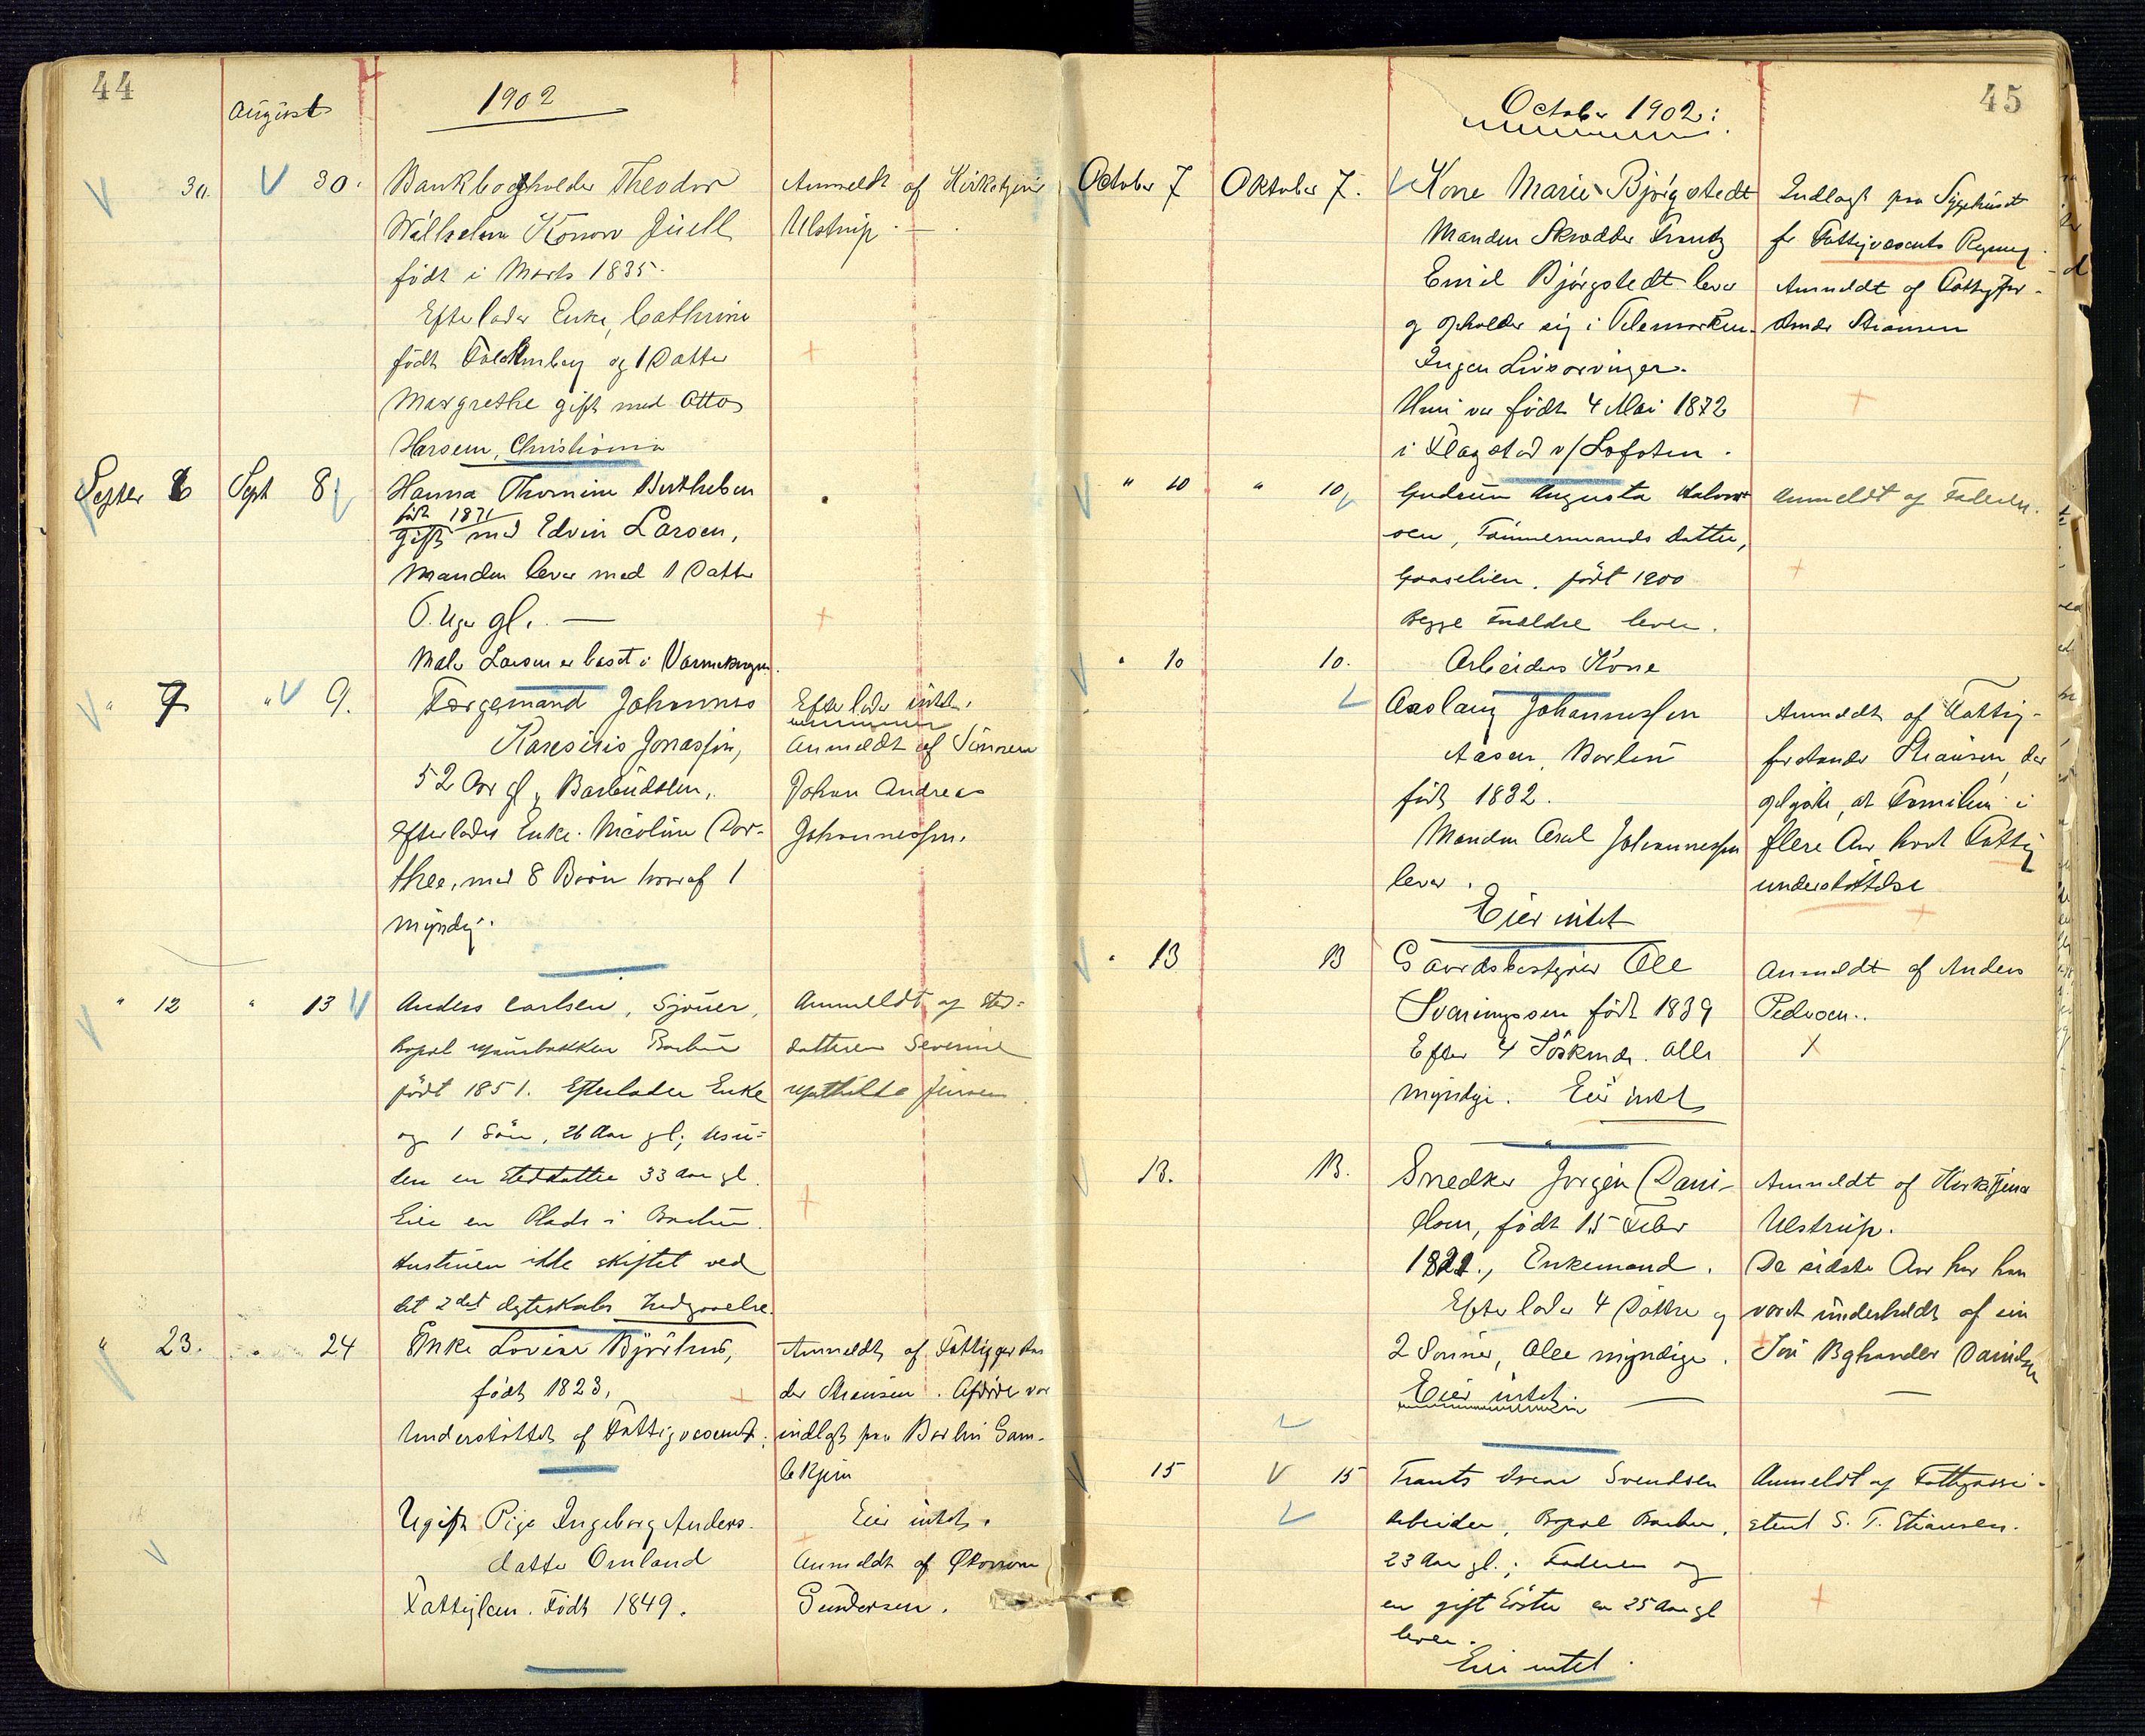 44
August
1902
30. 30. Bankbogholder Theodor
Anmeldt af Kirketjener
Wilhelm Konow Juell
Ulstrup.
født i Marts 1835.
Efterlader Enke, Cathrine
født og 1 Datter
Margrethe gift med Otto
Larsen, Christiania
Septer 8 Sept 8 Hanna Thomine Berthelsen
født 1871
gift med Edvin Larsen,
Manden lever med 1 Datter
6. Uger gl. —
Maler Larsen er bosat i
" 9 " 9. Færgemand Johannes
Efterlader intet.
Jonassen,
Anmeldt af Sønnen
52 Aar gl, Barbudalen,
Johan Andreas
Efterlader Enke Nicoline Dor-
Johannessen.
thea, med 8 Børn hvoraf 1
myndig.
" 12 " 13 Anders Carlsen, Sjøuer,
Anmeldt af Sted=
Bopæl Barbu
datteren Severine
født 1851. Efterlader Enke
Mathilde Jensen.
og 1 Søn, 26 Aar gl; desu=
den en Steddatter 33 Aar gl.
Eier en Plads i Barbu.
Hustruen ikke skiftet ved
det 2det Ægteskabs Indgaaelse.
" 23. " 24 Enke Lovise Bjørhus,
Anmeldt af Fattigforstan
født 1823,
der Stiansen. Afdøde var
Understøttet af Fattigvæsenet.
indlagt paa Barbu Gam-
lehjem
Ugift Pige Ingeborg Anders-
Eier intet.
datter Omland
Anmeldt af Økonom
Fattiglem. Født 1849.
Gundersen.
45
October 1902:
October 7 Oktober 7. Kone Marie Bjørgstedt
Indlagt paa Sygehuset
Manden Skrædder Frantz
for Fattigvæsenets Regning.
Emil Bjørgstedt lever
Anmeldt af Fattigfor-
og opholder sig i Telemarken.
stander Stiansen
Ingen Livsarvinger.
Hun var født 4 Mai 1872
i Flagstad v/Lofoten.
" 10 " 10 Gudrun Augusta Halvor
Anmeldt af Faderen.
sen, Tømmermands Datter,
født 1900
Begge Forældre lever.
" 10 10. Arbeiders Kone
Aaslaug Johannessen
Anmeldt af Fattig-
Aasen, Barbu
forstander Stiansen, der
født 1832.
opgiver, at Familien i
Manden Johannessen
flere Aar havt Fattig
lever.
understøttelse
Eier intet
" 13 13 Gaardsbestyrer Ole
Anmeldt af Anders
Svaningssen født 1839
Pedersen..
Efter 4 Søskende. Alle
myndige. Eier intet
13. 13. Snedker Jørgen Dani-
Anmeldt af Kirketjener
elsen, født 15 Febr
Ulstrup.
1821., Enkemand.
De sidste Aar har han
Efterlader 4 Døttre og
været underholdt af sin
2 Sønner, Alle myndige.
Søn Bghandler Danielsen
Eier intet. —
15 15 Frants Oscar Svendsen
Anmeldt af Fattigassi-
Arbeider, Bopæl Barbu,
stent S. T. Stiansen.
23 Aar gl.; Faderen og
en gift Søster er 25 Aar gl
lever.
Eier intet.